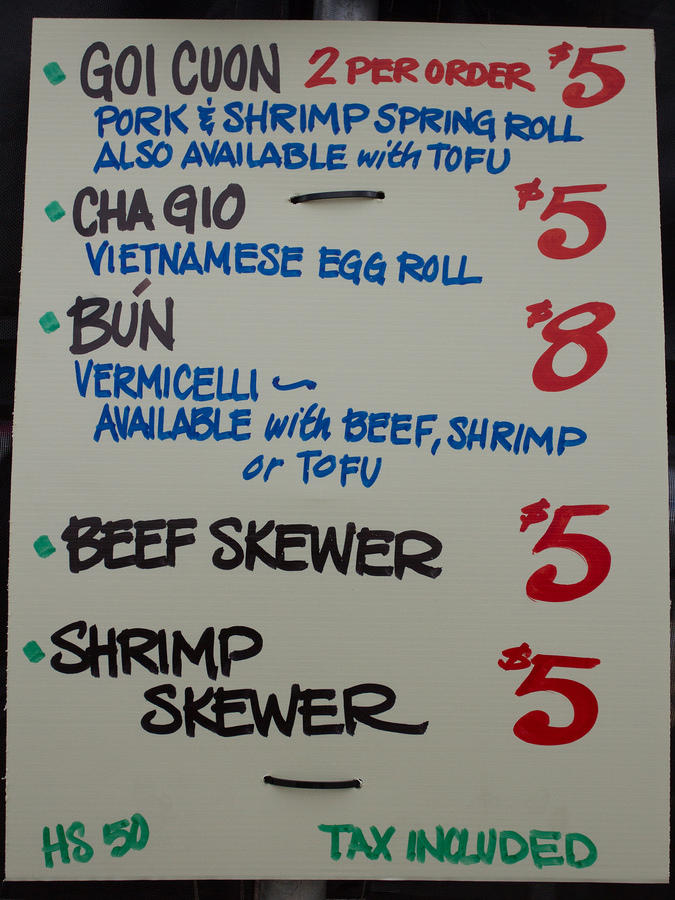 GOI CUON 2 PER ORDER $5
PORK & SHRIMP SPRING ROLL
ALSO AVAILABLE with TOFU
CHA GIO $5
VIETNAMESE EGG ROLL
BÚN $8
VERMICELLI ~
AVAILABLE with BEEF, SHRIMP
or TOFU
BEEF SKEWER $5
SHRIMP
SKEWER $5
HS 50 TAX INCLUDED